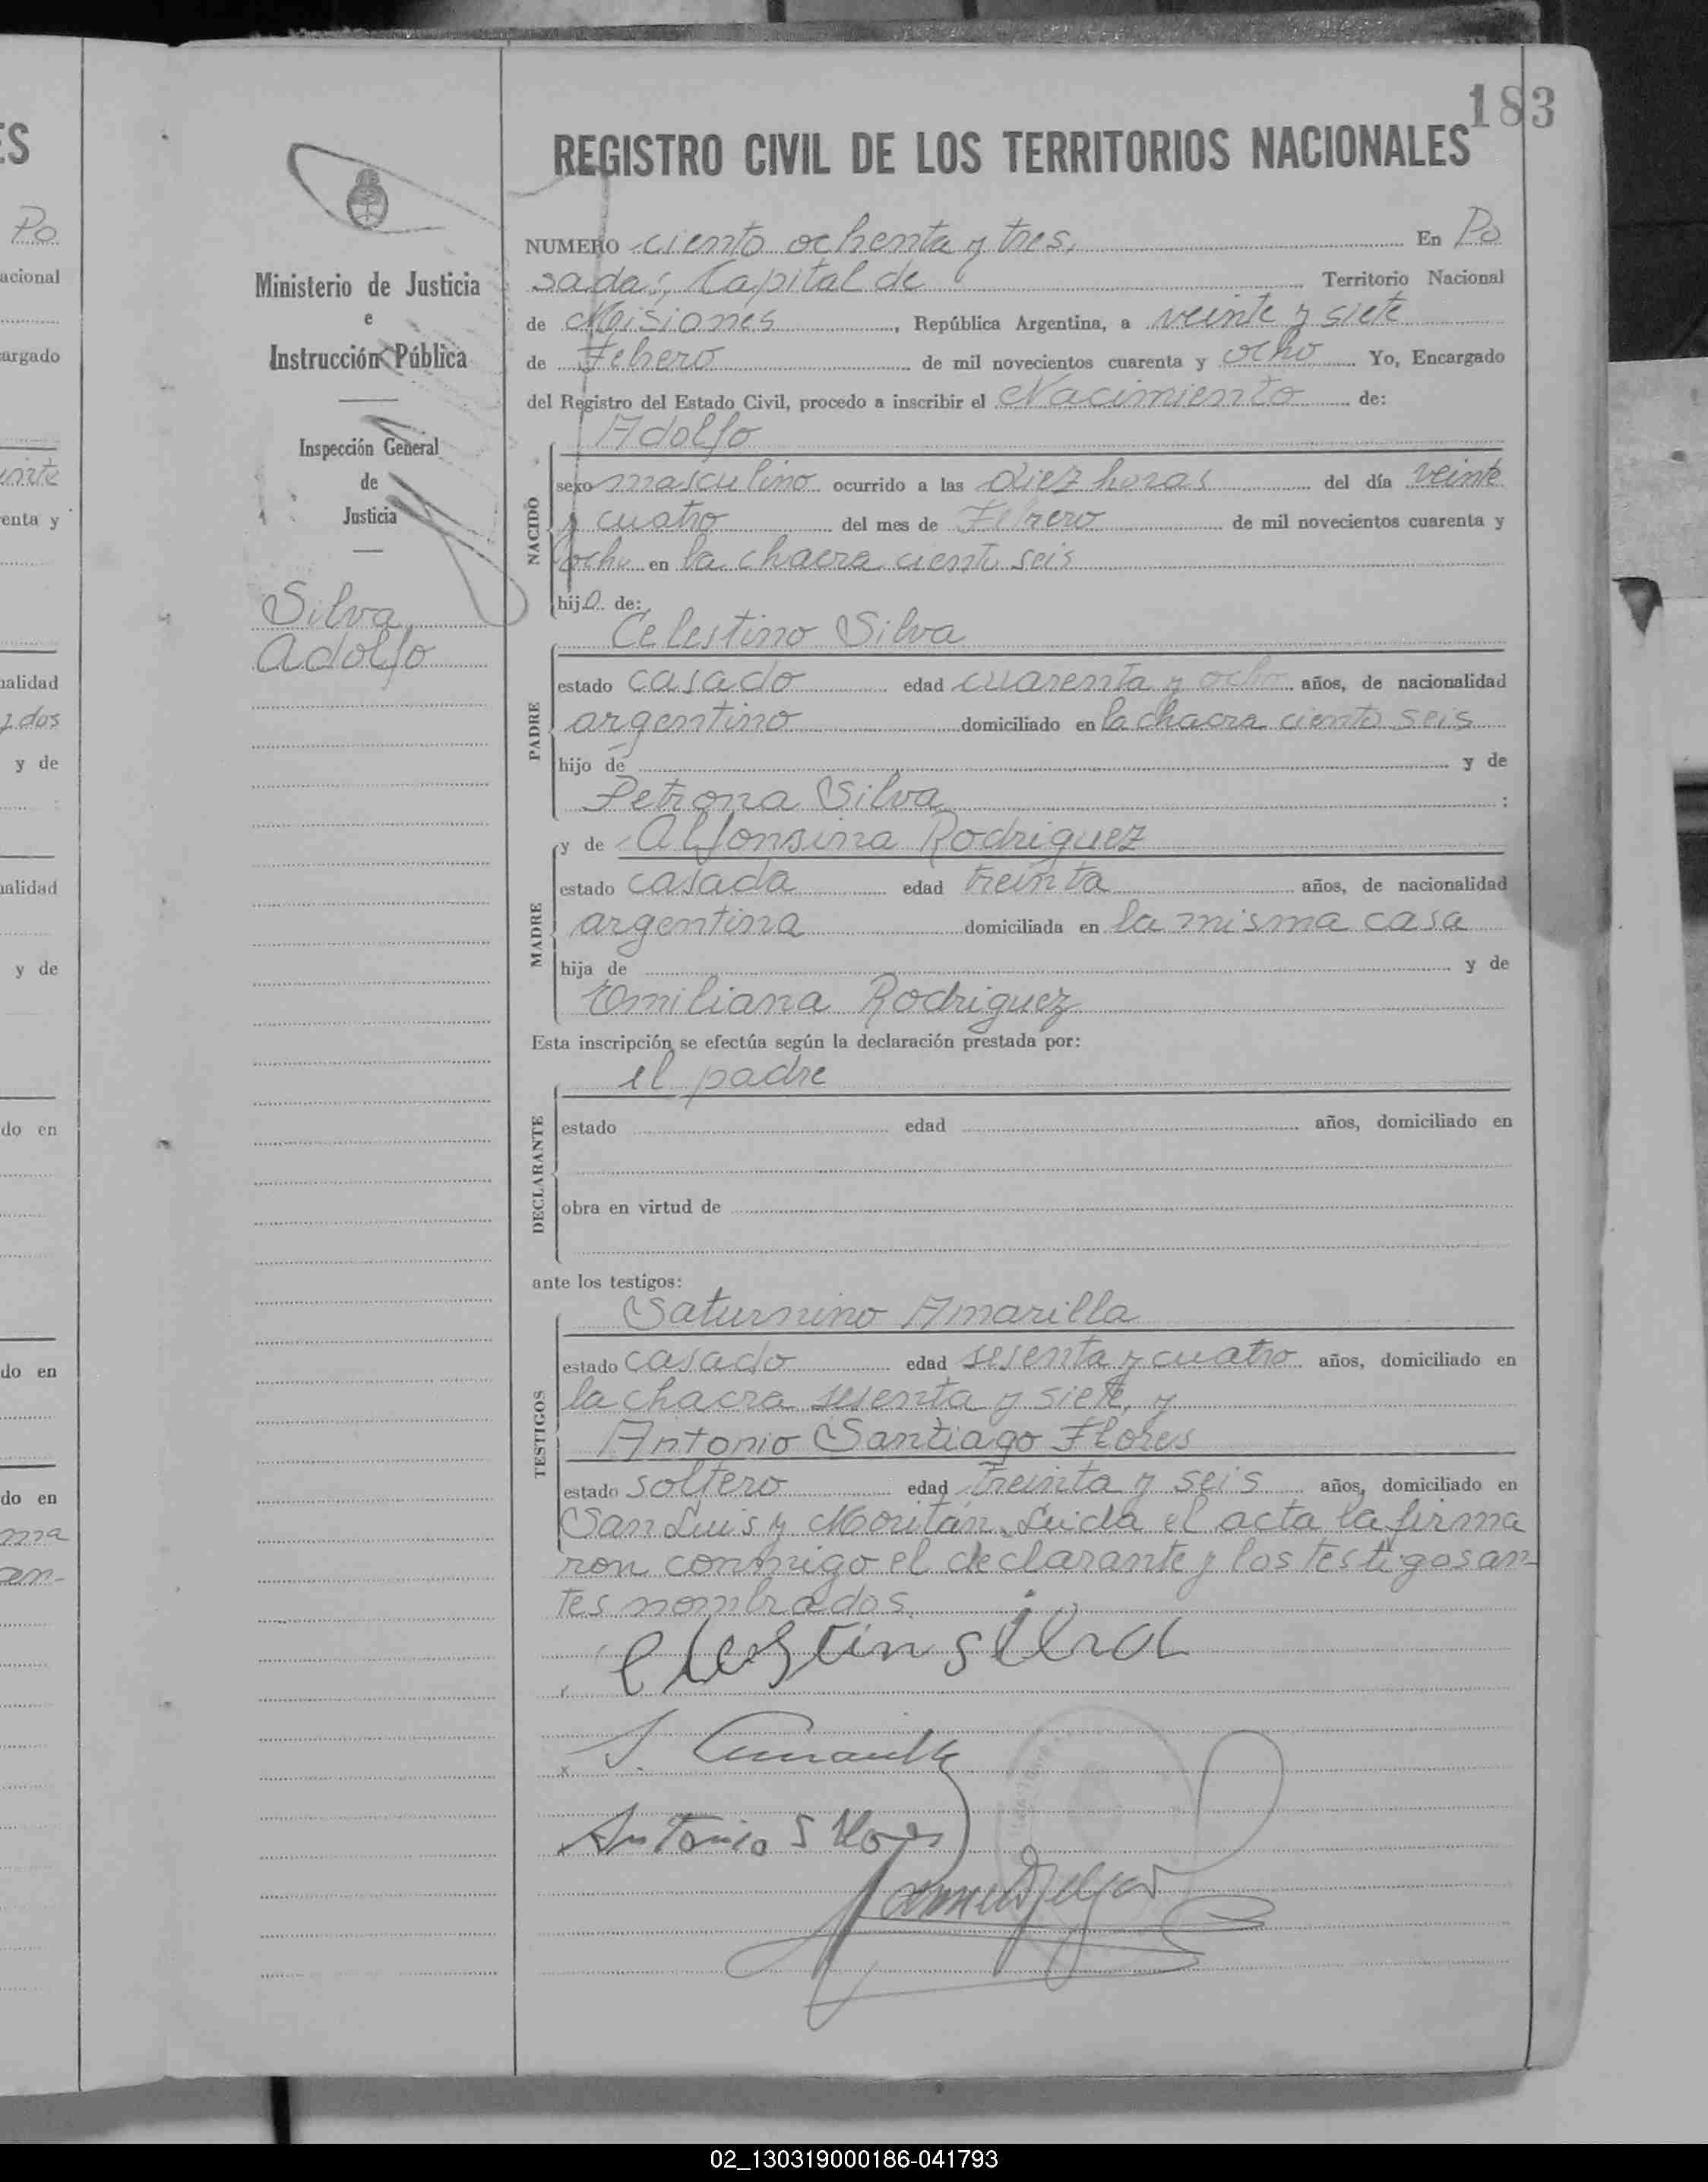 183
REGISTRO CIVIL DE LOS TERRITORIOS NACIONALES
NUMERO ciento ochenta y tres, En Po
sadas, Capital de Territorio Nacional
de Misiones, República Argentina, a veinte y siete
de Febrero de mil novecientos cuarenta y ocho Yo, Encargado
del Registro del Estado Civil, procedo a inscribir el Nacimiento de:
Adolfo
NACIDO
sexo masculino ocurrido a las diez horas del día veinte
y cuatro del mes de Febrero de mil novecientos cuarenta y
ocho en la chacra ciento seis
hijo de:
Celestino Silva
PADRE
estado casado edad cuarenta y ocho años, de nacionalidad
argentino domiciliado en la chacra ciento seis
hijo de y de
Petrona Silva ;
y de Alfonsina Rodriguez
MADRE
estado casada edad treinta años, de nacionalidad
argentina domiciliada en la misma casa
hija de y de
Emiliana Rodriguez
Esta inscripción se efectúa según la declaración prestada por:
el padre
DECLARANTE
estado edad años, domiciliado en
obra en virtud de
ante los testigos:
Saturnino Amarilla
TESTIGOS
estado casado edad sesenta y cuatro años, domiciliado en
la chacra sesenta y siete, y
Antonio Santiago Flores
estado soltero edad treinta y seis años, domiciliado en
San Luis y Moritán. Leida el acta la firma
ron conmigo el declarante y los testigos an-
tes nombrados.
S. Amarilla
Antonio S Flores
Ministerio de Justicia
e
Instrucción Pública
Inspección General
de
Justicia
Silva
Adolfo
ES
Po
acional
argado
enta y
alidad
y dos
y de
alidad
y de
do en
do en
do en
ma
an-
02_130319000186-041793